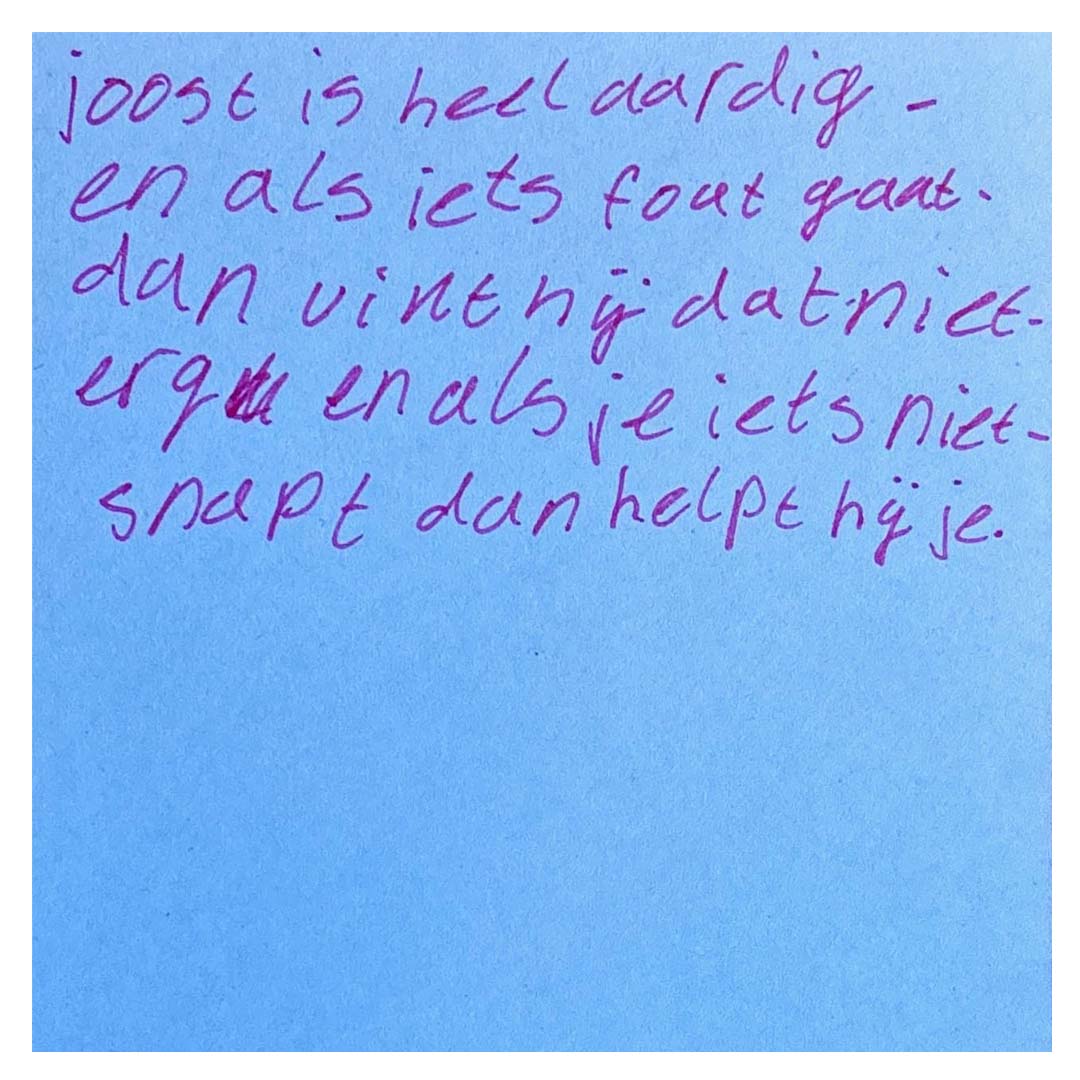 joost is heel aardig -
en als iets fout gaat.
dan vint hij dat niet-
erg en als je iets niet-
snapt dan helpt hij je.